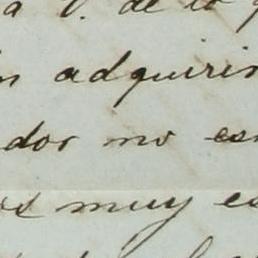 a V. de lo
adquirir
dor no es
os muy es